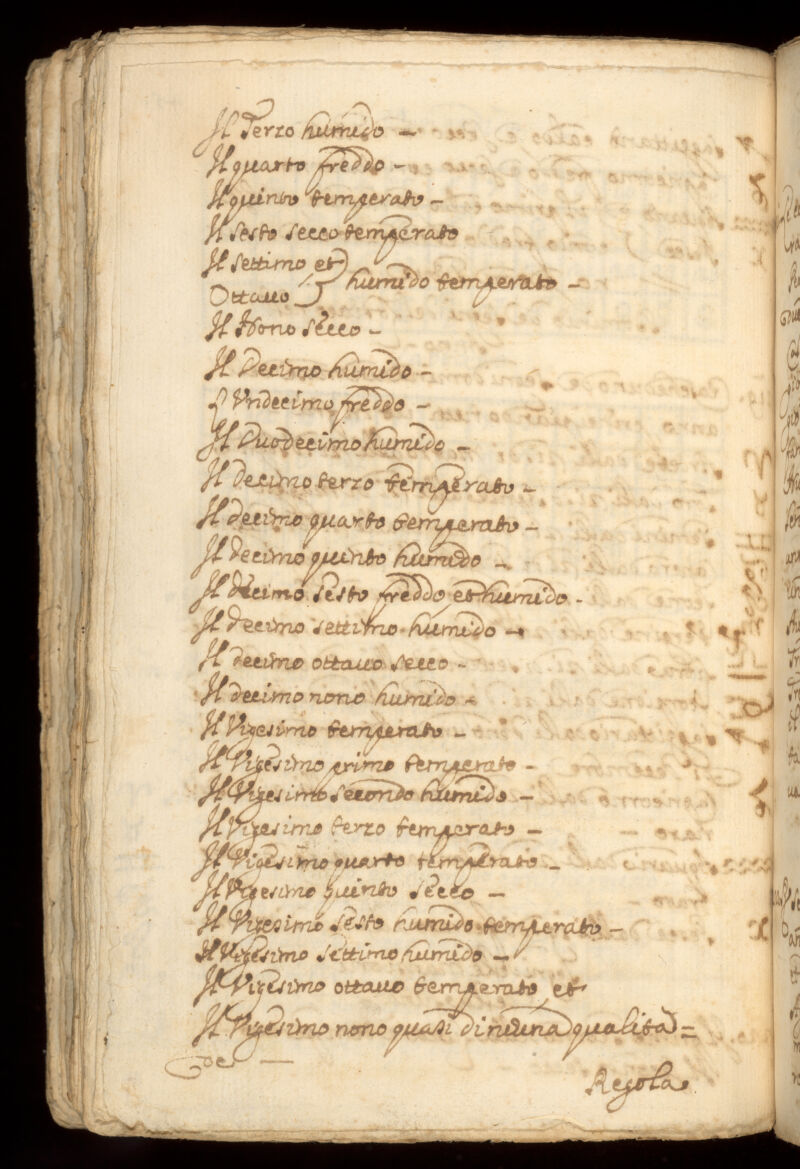 Il Terzo humido –
Il quarto freddo –
Il quinto temperato –
Il sesto secco temperato
Il settimo et
Ottauo } humido temperato –
Il Nono secco –
Il Decimo humido –
L'Undecimo freddo –
Il Duodecimo humido –
Il decimo terzo temperato –
Il decimo quarto temperato –
Il decimo quinto humido –
Il decimo sesto freddo et humido –
Il decimo settimo humido –
Il decimo ottauo secco –
Il decimo nono humido –
Il Vigesimo temperato –
Il Vigesimo primo temperato –
Il Vigesimo secondo humido –
Il Vigesimo terzo temperato –
Il Vigesimo quarto temperato –
Il Vigesimo quinto secco –
Il Vigesimo sesto humido temperato –
Il Vigesimo settimo humido –
Il Vigesimo ottauo temperato et
Il Vigesimo nono quasi di niuna qualita =
de –
Regola